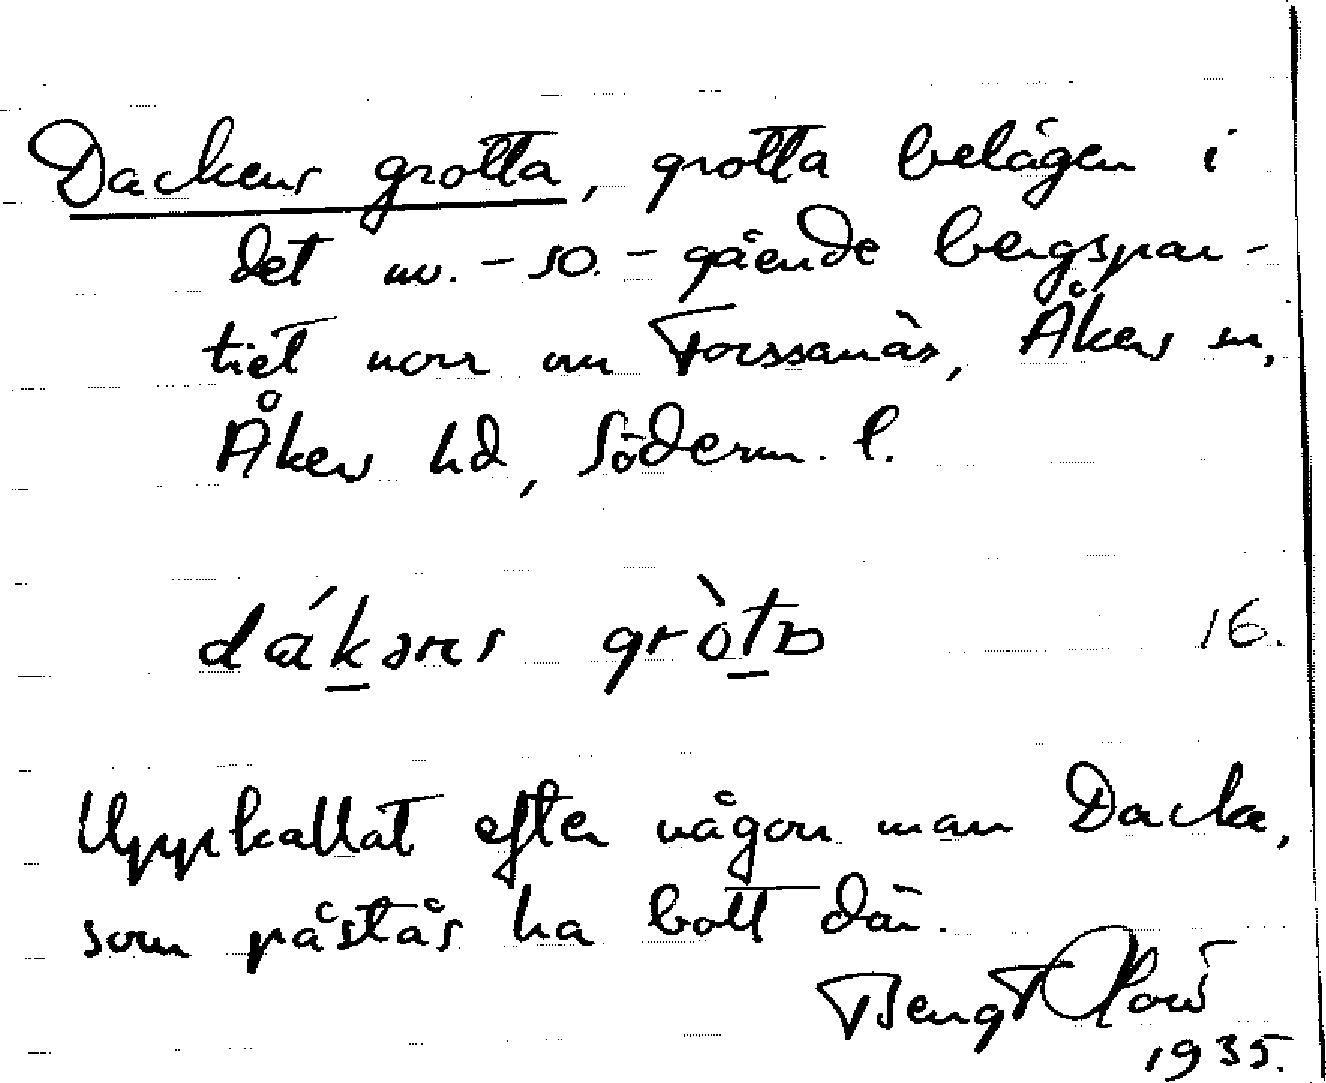 Dackens grotta, grotta belägen i
det nv. - so. - gående bergspar-
tiet norr om Forssanäs, Åkers sn,
Åkers hd, Söderm. l.
dákəns gròta 16.
Uppkallat efter någon man Dacke,
som påstås ha bott där.
Bengt
1935.